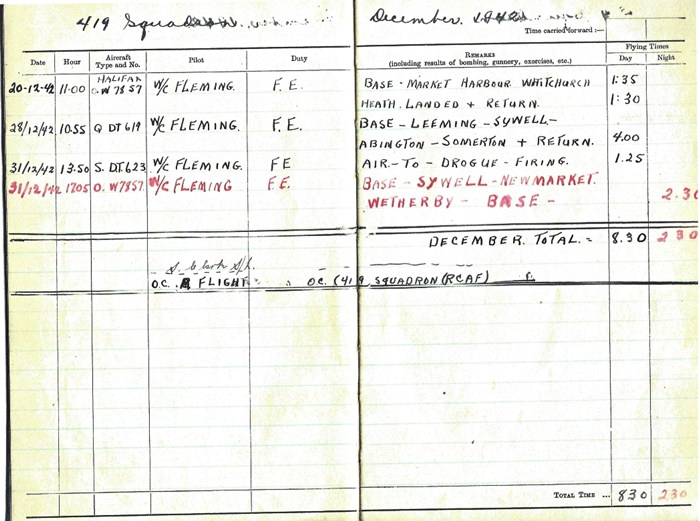 419 Squadron. December. 1942.
Time carried forward:—
Date Hour Aircraft Type and No. Pilot Duty REMARKS (including results of bombing, gunnery, exercises, etc.) Flying Times Day Night
20-12-42 11.00 HALIFAX O. W7857 W/C FLEMING. F.E. BASE - MARKET HARBOUR WHITCHURCH 1:35
HEATH. LANDED + RETURN. 1:30
28/12/42 10.55 Q DT619 W/C FLEMING. F.E. BASE - LEEMING - SYWELL -
ABINGTON - SOMERTON + RETURN. 4.00
31/12/42 13.50 S. DT.623 W/C FLEMING. FE AIR - TO - DROGUE - FIRING. 1.25
31/12/42 1705 O. W7857 W/C FLEMING F.E. BASE - SYWELL - NEWMARKET.
WETHERBY - BASE - 2.30
DECEMBER. TOTAL. = 8.30 2 30
O.C. FLIGHT O.C. (419 SQUADRON (RCAF)
TOTAL TIME ... 830 230